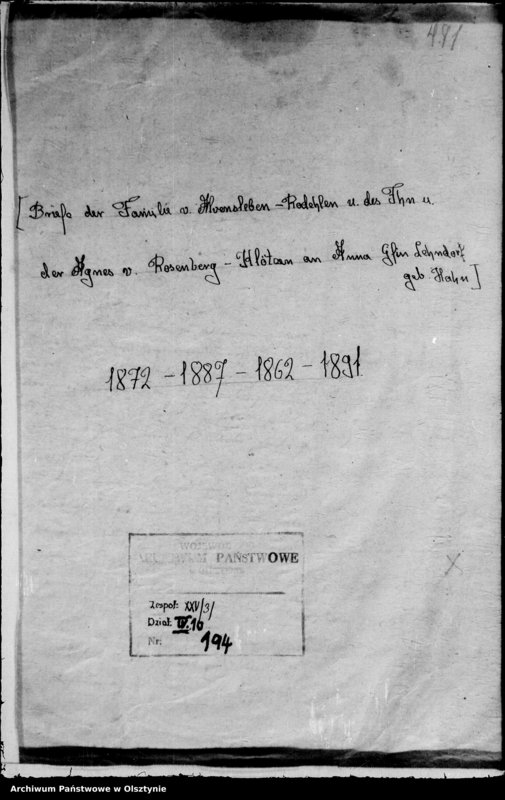 481
[Briefe der Familie v. Alvensleben-Rodehlen u. des Fhn u.
der Agnes v. Rosenberg - Klötzen an Anna Gfin Lehndorf
geb. Hahn]
1872 - 1887 - 1862 - 1891
PAŃSTWOWE
Zespół: XXV/3/
Dział: IV.10
Nr: 194
X
Archiwum Państwowe w Olsztynie